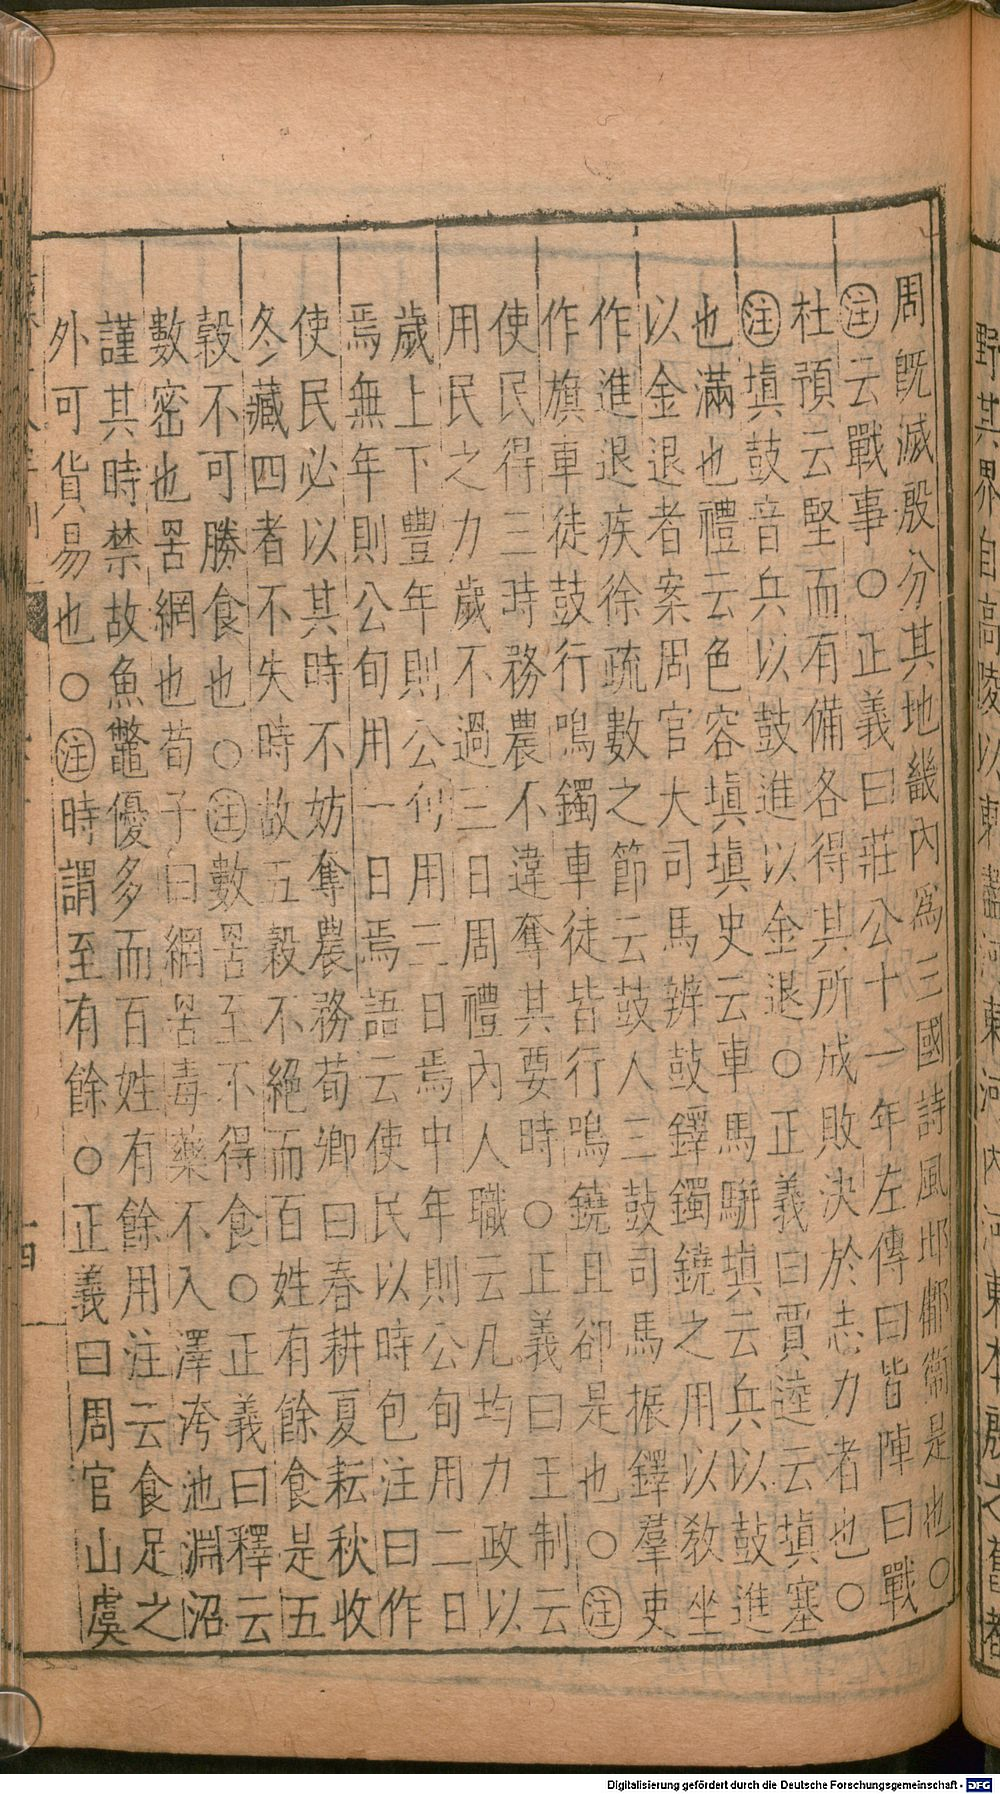 周既滅殷分其地畿內為三國詩風邶鄘衛是也○
注云戰事○正義曰莊公十一年左傳曰皆陣曰戰
杜預云堅而有備各得其所成敗決於志力者也○
注填鼓音兵以鼓進以金退○正義曰賈逵云填塞
也滿也禮云色容填填史云車馬駢填云兵以鼓進
以金退者案周官大司馬辨鼓鐸鐲鐃之用以敎坐
作進退疾徐疏數之節云鼓人三鼓司馬振鐸羣吏
作旗車徒鼓行鳴鐲車徒皆行鳴鐃且卻是也○注
使民得三時務農不違奪其要時○正義曰王制云
用民之力歲不過三日周禮內人職云凡均力政以
歲上下豐年則公旬用三日焉中年則公旬用二日
焉無年則公旬用一日焉語云使民以時包注曰作
使民必以其時不妨奪農務荀卿曰春耕夏耘秋收
冬藏四者不失時故五穀不絕而百姓有餘食是五
穀不可勝食也○注數罟至不得食○正義曰釋云
數密也罟網也荀子曰網罟毒藥不入澤洿池淵沼
謹其時禁故魚鼈優多而百姓有餘用注云食足之
外可貨易也○注時謂至有餘○正義曰周官山虞
十四
野其界自高陵以東盡河東河內河東本殷之舊都
Digitalisierung gefördert durch die Deutsche Forschungsgemeinschaft - DFG